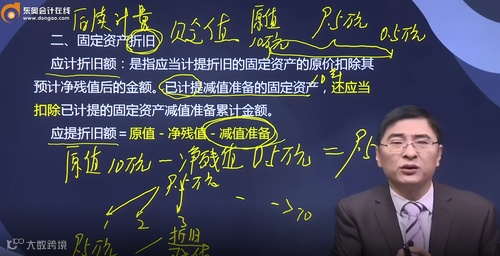 东奥会计在线
www.dongao.com
后续计量
原值
10万元
9.5万元
0.5万元
二、固定资产折旧
应计折旧额：是指应当计提折旧的固定资产的原价扣除其
预计净残值后的金额。已计提减值准备的固定资产，还应当
扣除已计提的固定资产减值准备累计金额。
应提折旧额＝原值－净残值－减值准备
原值10万元－净残值0.5万元＝9.5
9.5万元
1 2 3
10
折旧
大数跨境